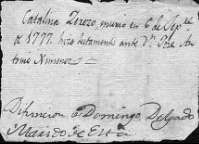 Catalina Perozo, murio en 6 de Sepre
de 1777. hizo testamento ante Dn Jose An
tonio Nunez
Difuncion a Domingo Delgado
Marido de Esta